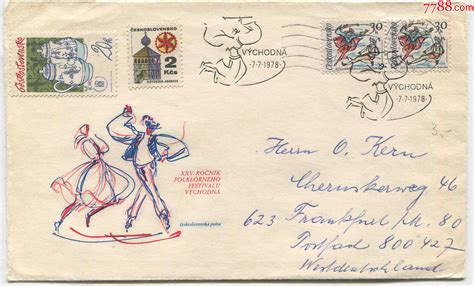 7788.com
Československo
20h
ČESKOSLOVENSKO
2
Kčs
VÝCHODNÁ
-7-7-1978-
30
30
Československo
VÝCHODNÁ
-7-7-1978-
3,-
XXV. ROČNÍK
FOLKLÓRNEHO
FESTIVALU
VÝCHODNÁ
československá pošta
Herrn O. Kern
Cheruskerweg 46
623 Frankfurt M. 80
Postfach 800427
Westdeutschland